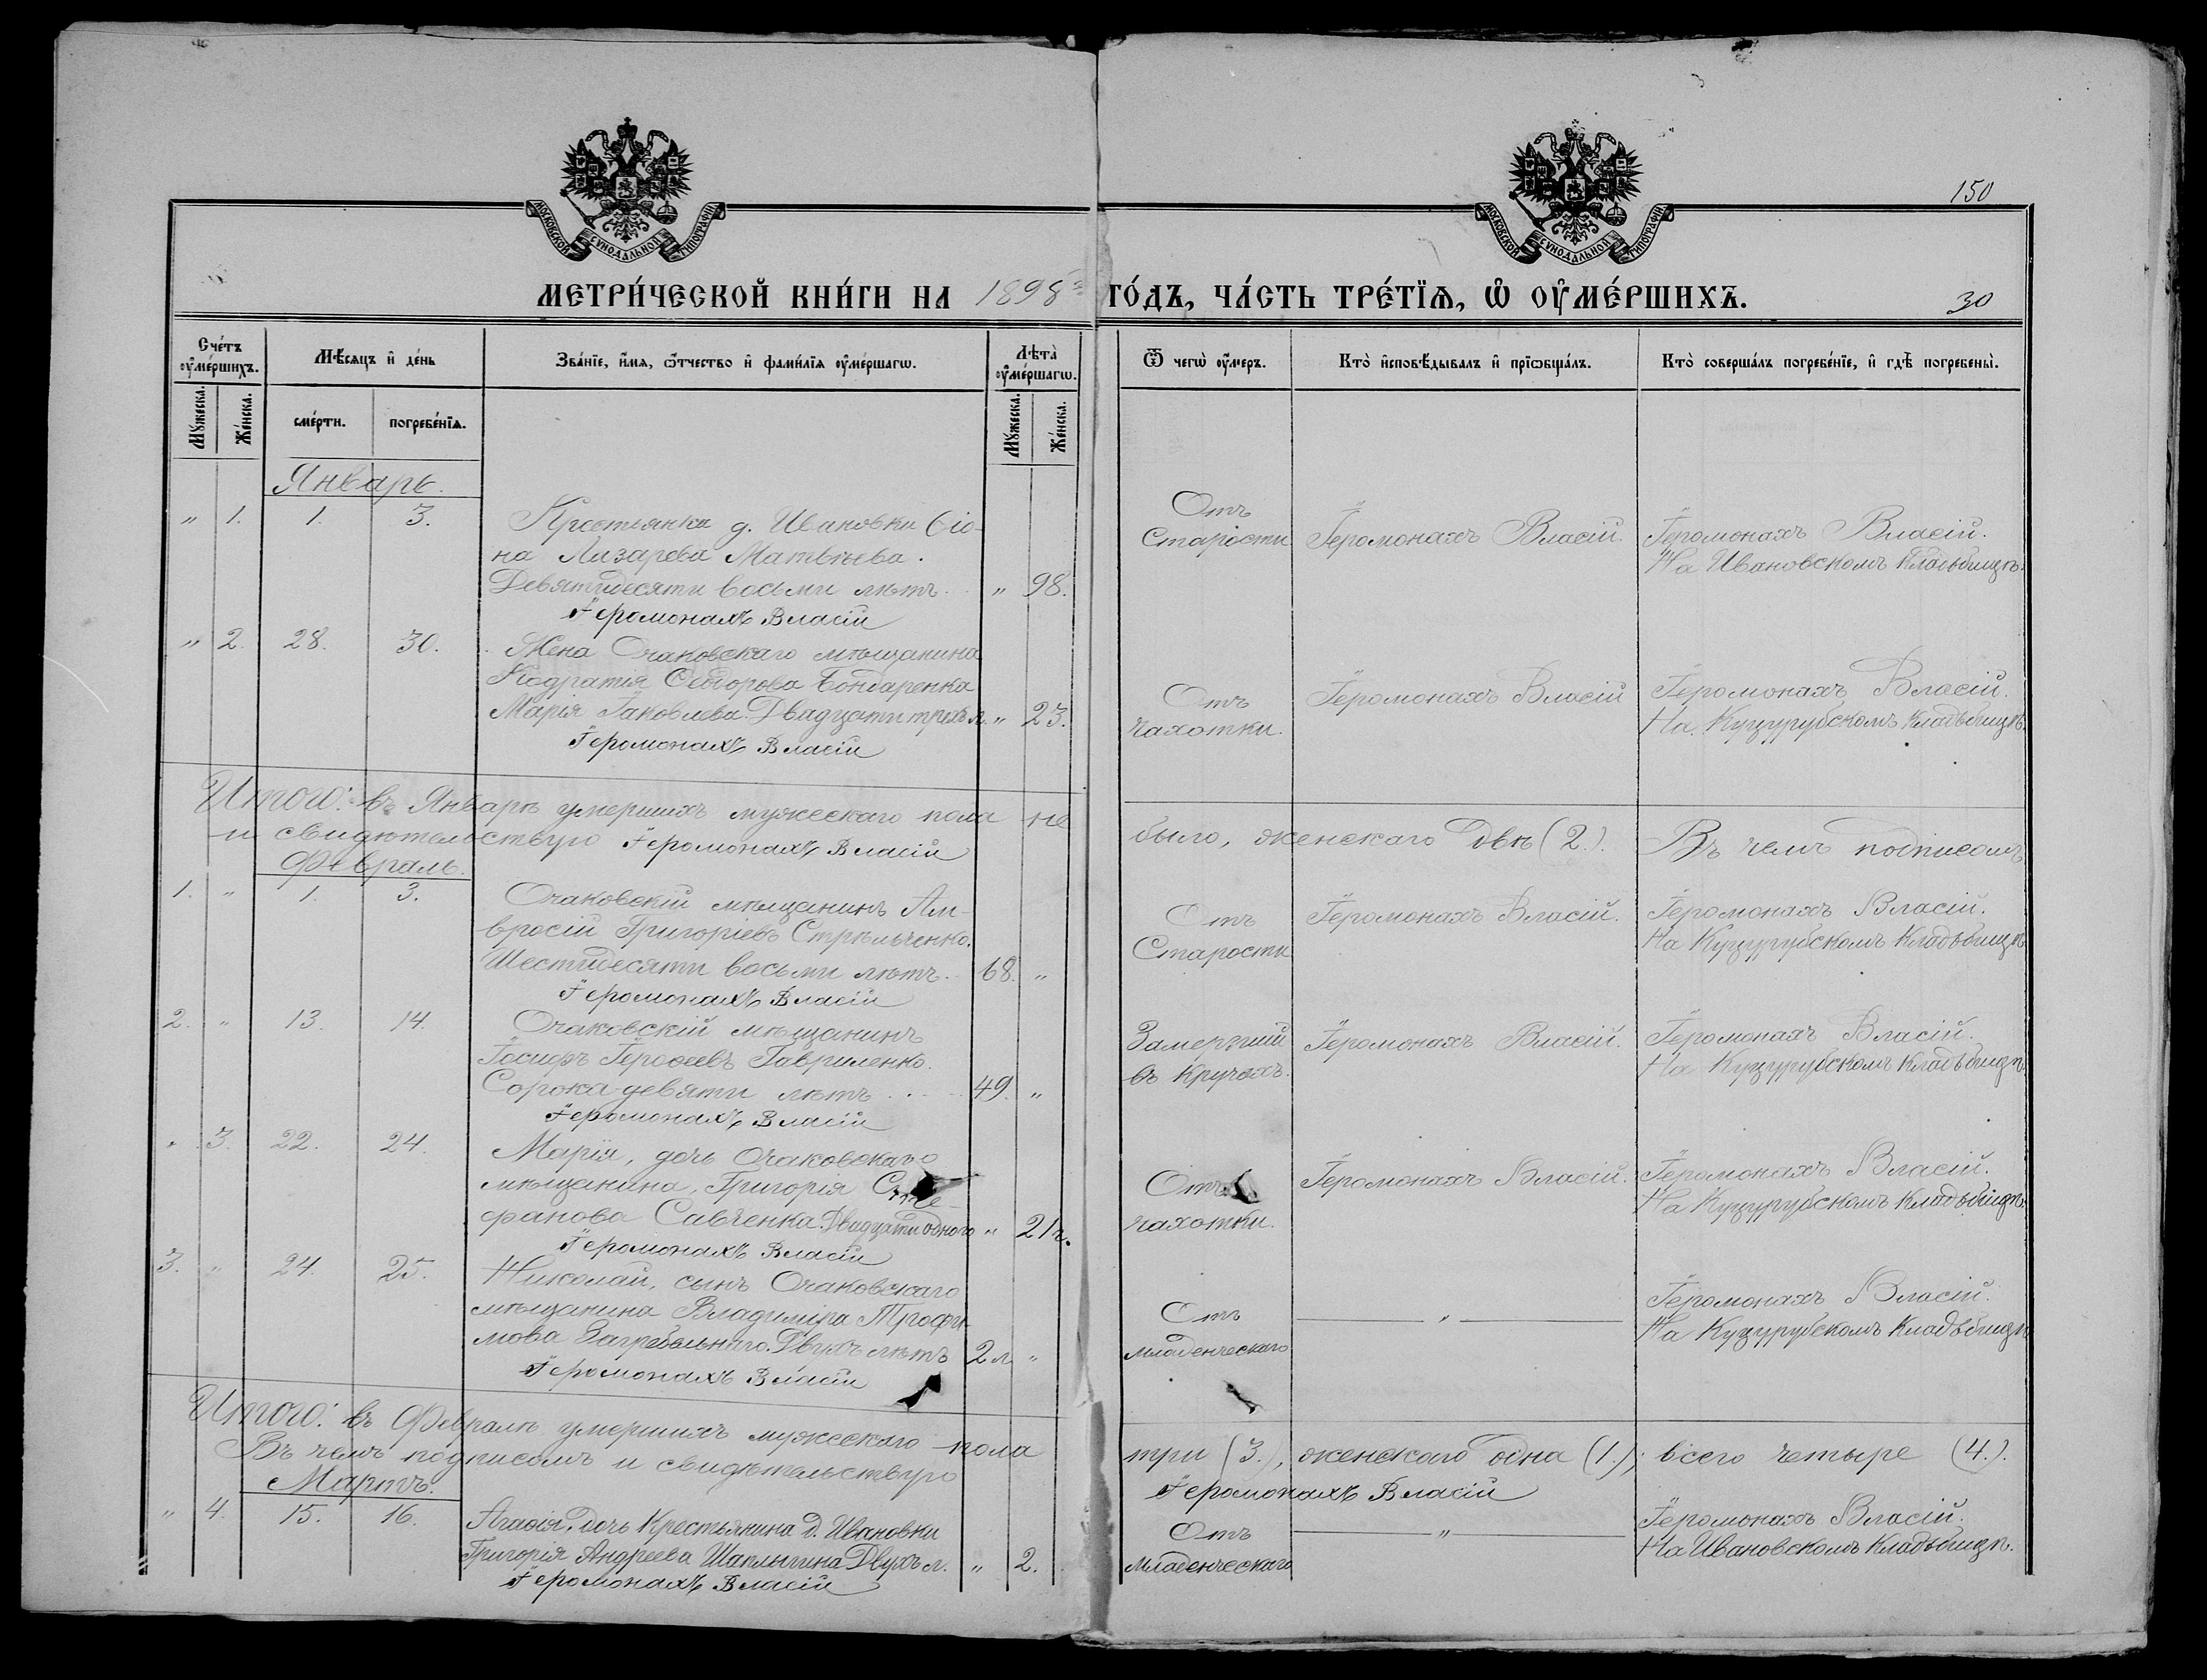 МОСКОВСКОЙ СѴНОДАЛЬНОЙ ТИПОГРАФІИ
МОСКОВСКОЙ СѴНОДАЛЬНОЙ ТИПОГРАФІИ
150
МЕТРИ́ЧЕСКОЙ КНИ́ГИ НА 1898й ГО́ДЪ, ЧА́СТЬ ТРЕ́ТЇѦ, Ѡ҆ ОУ҆МЕ́РШИХЪ.
30
Сче́тъ оу҆ме́ршихъ.
Мѣ́сяцъ и҆ де́нь
Зва́нїе, и҆́мѧ, ѻ҆́тчество и҆ фами́лїѧ оу҆ме́ршагѡ.
Лѣ̀та оу҆ме́ршагѡ.
Ѿ чегѡ̀ оу҆́меръ.
Кто̀ и҆сповѣ́дывалъ и҆ прїѡбща́лъ.
Кто̀ соверша́лъ погребе́нїе, и҆ гдѣ̀ погребены̀.
Мꙋ́жеска.
Же́нска.
сме́рти.
погребе́нїѧ.
Мꙋ́жеска.
Же́нска.
Январь.
" 1. 1. 3. Крестьянка д. Ивановки Сіо-
на Лазарева Матвѣева.
Девятидесяти восьми лѣтъ. " 98.
Іеромонахъ Власій
Отъ
Старости
Іеромонахъ Власій.
Іеромонахъ Власій.
На Ивановскомъ Кладьбищѣ.
" 2. 28. 30. Жена Очаковскаго мѣщанина
Кодратія Ѳедорова Бондаренка
Марія Іаковлева. Двадцати трехъ л. " 23.
Іеромонахъ Власій
Отъ
чахотки.
Іеромонахъ Власій
Іеромонахъ Власій.
На Куцурубскомъ Кладьбищѣ.
Итого: въ Январѣ умершихъ мужескаго пола не было, женскаго двѣ (2.). Въ чемъ подписомъ
и свидѣтельствую Іеромонахъ Власій
Февраль.
1. " 1. 3. Очаковскій мѣщанинъ Ам-
вросій Григоріевъ Стрѣльченко.
Шестидесяти восьми лѣтъ. 68. "
Іеромонахъ Власій
Отъ
Старости
Іеромонахъ Власій.
Іеромонахъ Власій.
На Куцурубскомъ Кладьбищѣ
2. " 13. 14. Очаковскій мѣщанинъ
Іосифъ Іероѳеевъ Гавриленко.
Сорока девяти лѣтъ 49. "
Іеромонахъ Власій
Замерзшій
въ кручахъ.
Іеромонахъ Власій.
Іеромонахъ Власій.
На Куцурубскомъ Кладьбищѣ.
" 3. 22. 24. Марія, дочь Очаковскаго
мѣщанина, Григорія Сте-
фанова Савченка. Двадцати одного " 21 г.
Іеромонахъ Власій
Отъ
чахотки.
Іеромонахъ Власій.
Іеромонахъ Власій.
На Куцурубскомъ Кладьбищѣ.
3. " 24. 25. Николай, сынъ Очаковскаго
мѣщанина Владиміра Трофи-
мова Загребельнаго. Двухъ лѣтъ 2 л. "
Іеромонахъ Власій
Отъ
младенческаго
"
Іеромонахъ Власій.
На Куцурубскомъ Кладьбищѣ
Итого: въ Февралѣ умершихъ мужескаго пола три (3.), женскаго одна (1.); всего четыре (4.).
Въ чемъ подписомъ и свидѣтельствую Іеромонахъ Власій
Мартъ.
" 4. 15. 16. Агаѳія, дочь Крестьянина д. Ивановки
Григорія Андреева Шаплыгина Двухъ л. " 2.
Іеромонахъ Власій
Отъ
младенческаго
"
Іеромонахъ Власій.
На Ивановскомъ Кладьбищѣ.